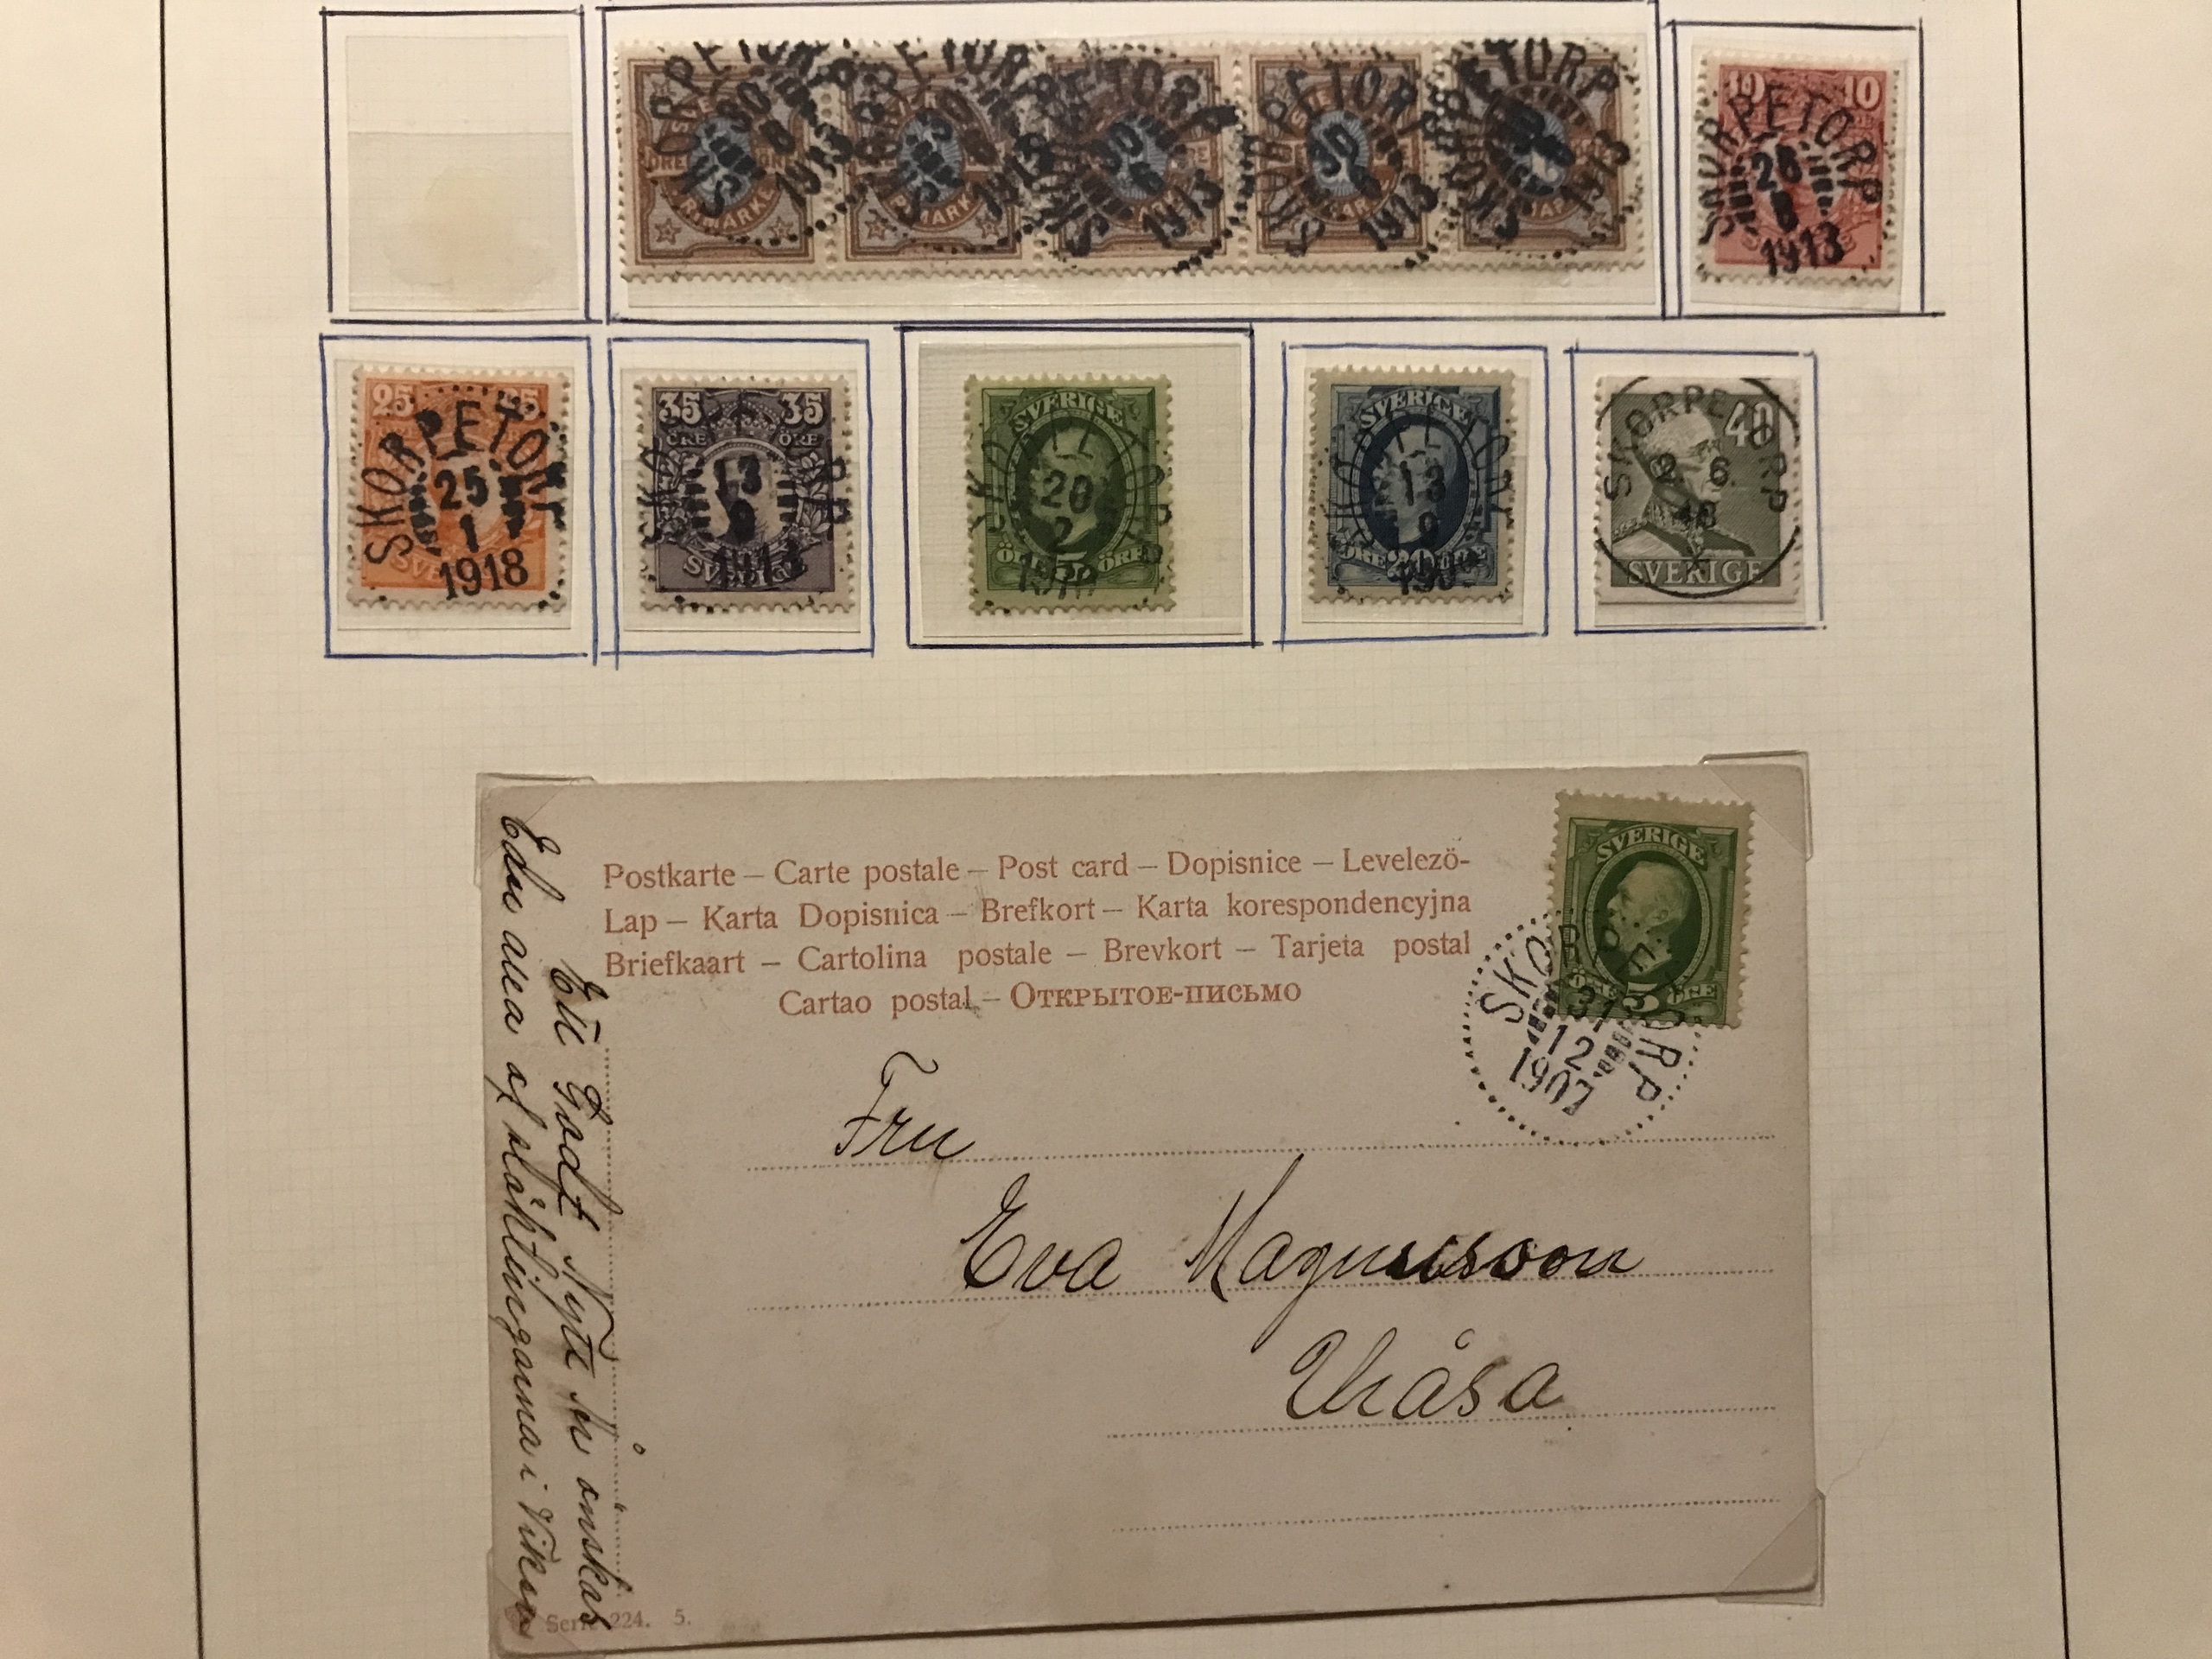 SKORPETORP 30 8 1913
SKORPETORP 30 8 1913
SKORPETORP 30 8 1913
SKORPETORP 30 8 1913
SKORPETORP 1913
10 10
SKORPETORP
28
8
1913
25 25
SKORPETORP
25
1
1918
35 35
ÖRE ÖRE
13
9
SVERIGE
SVERIGE
20
2
ÖRE 5 ÖRE
SVERIGE
13
9
ÖRE 20 ÖRE
40
SKORPETORP
9 6
48
SVERIGE
Postkarte – Carte postale – Post card – Dopisnice – Levelezö-
Lap – Karta Dopisnica – Brefkort – Karta korespondencyjna
Briefkaart – Cartolina postale – Brevkort – Tarjeta postal
Cartao postal – Открытое-письмо
SVERIGE
ÖRE 5 ÖRE
SKORPETORP
31
12
1907
Fru
Eva Magnusson
Uråsa
Ett Godt Nytt År önskas
Eder alla af släktingarna i
Serie 224. 5.